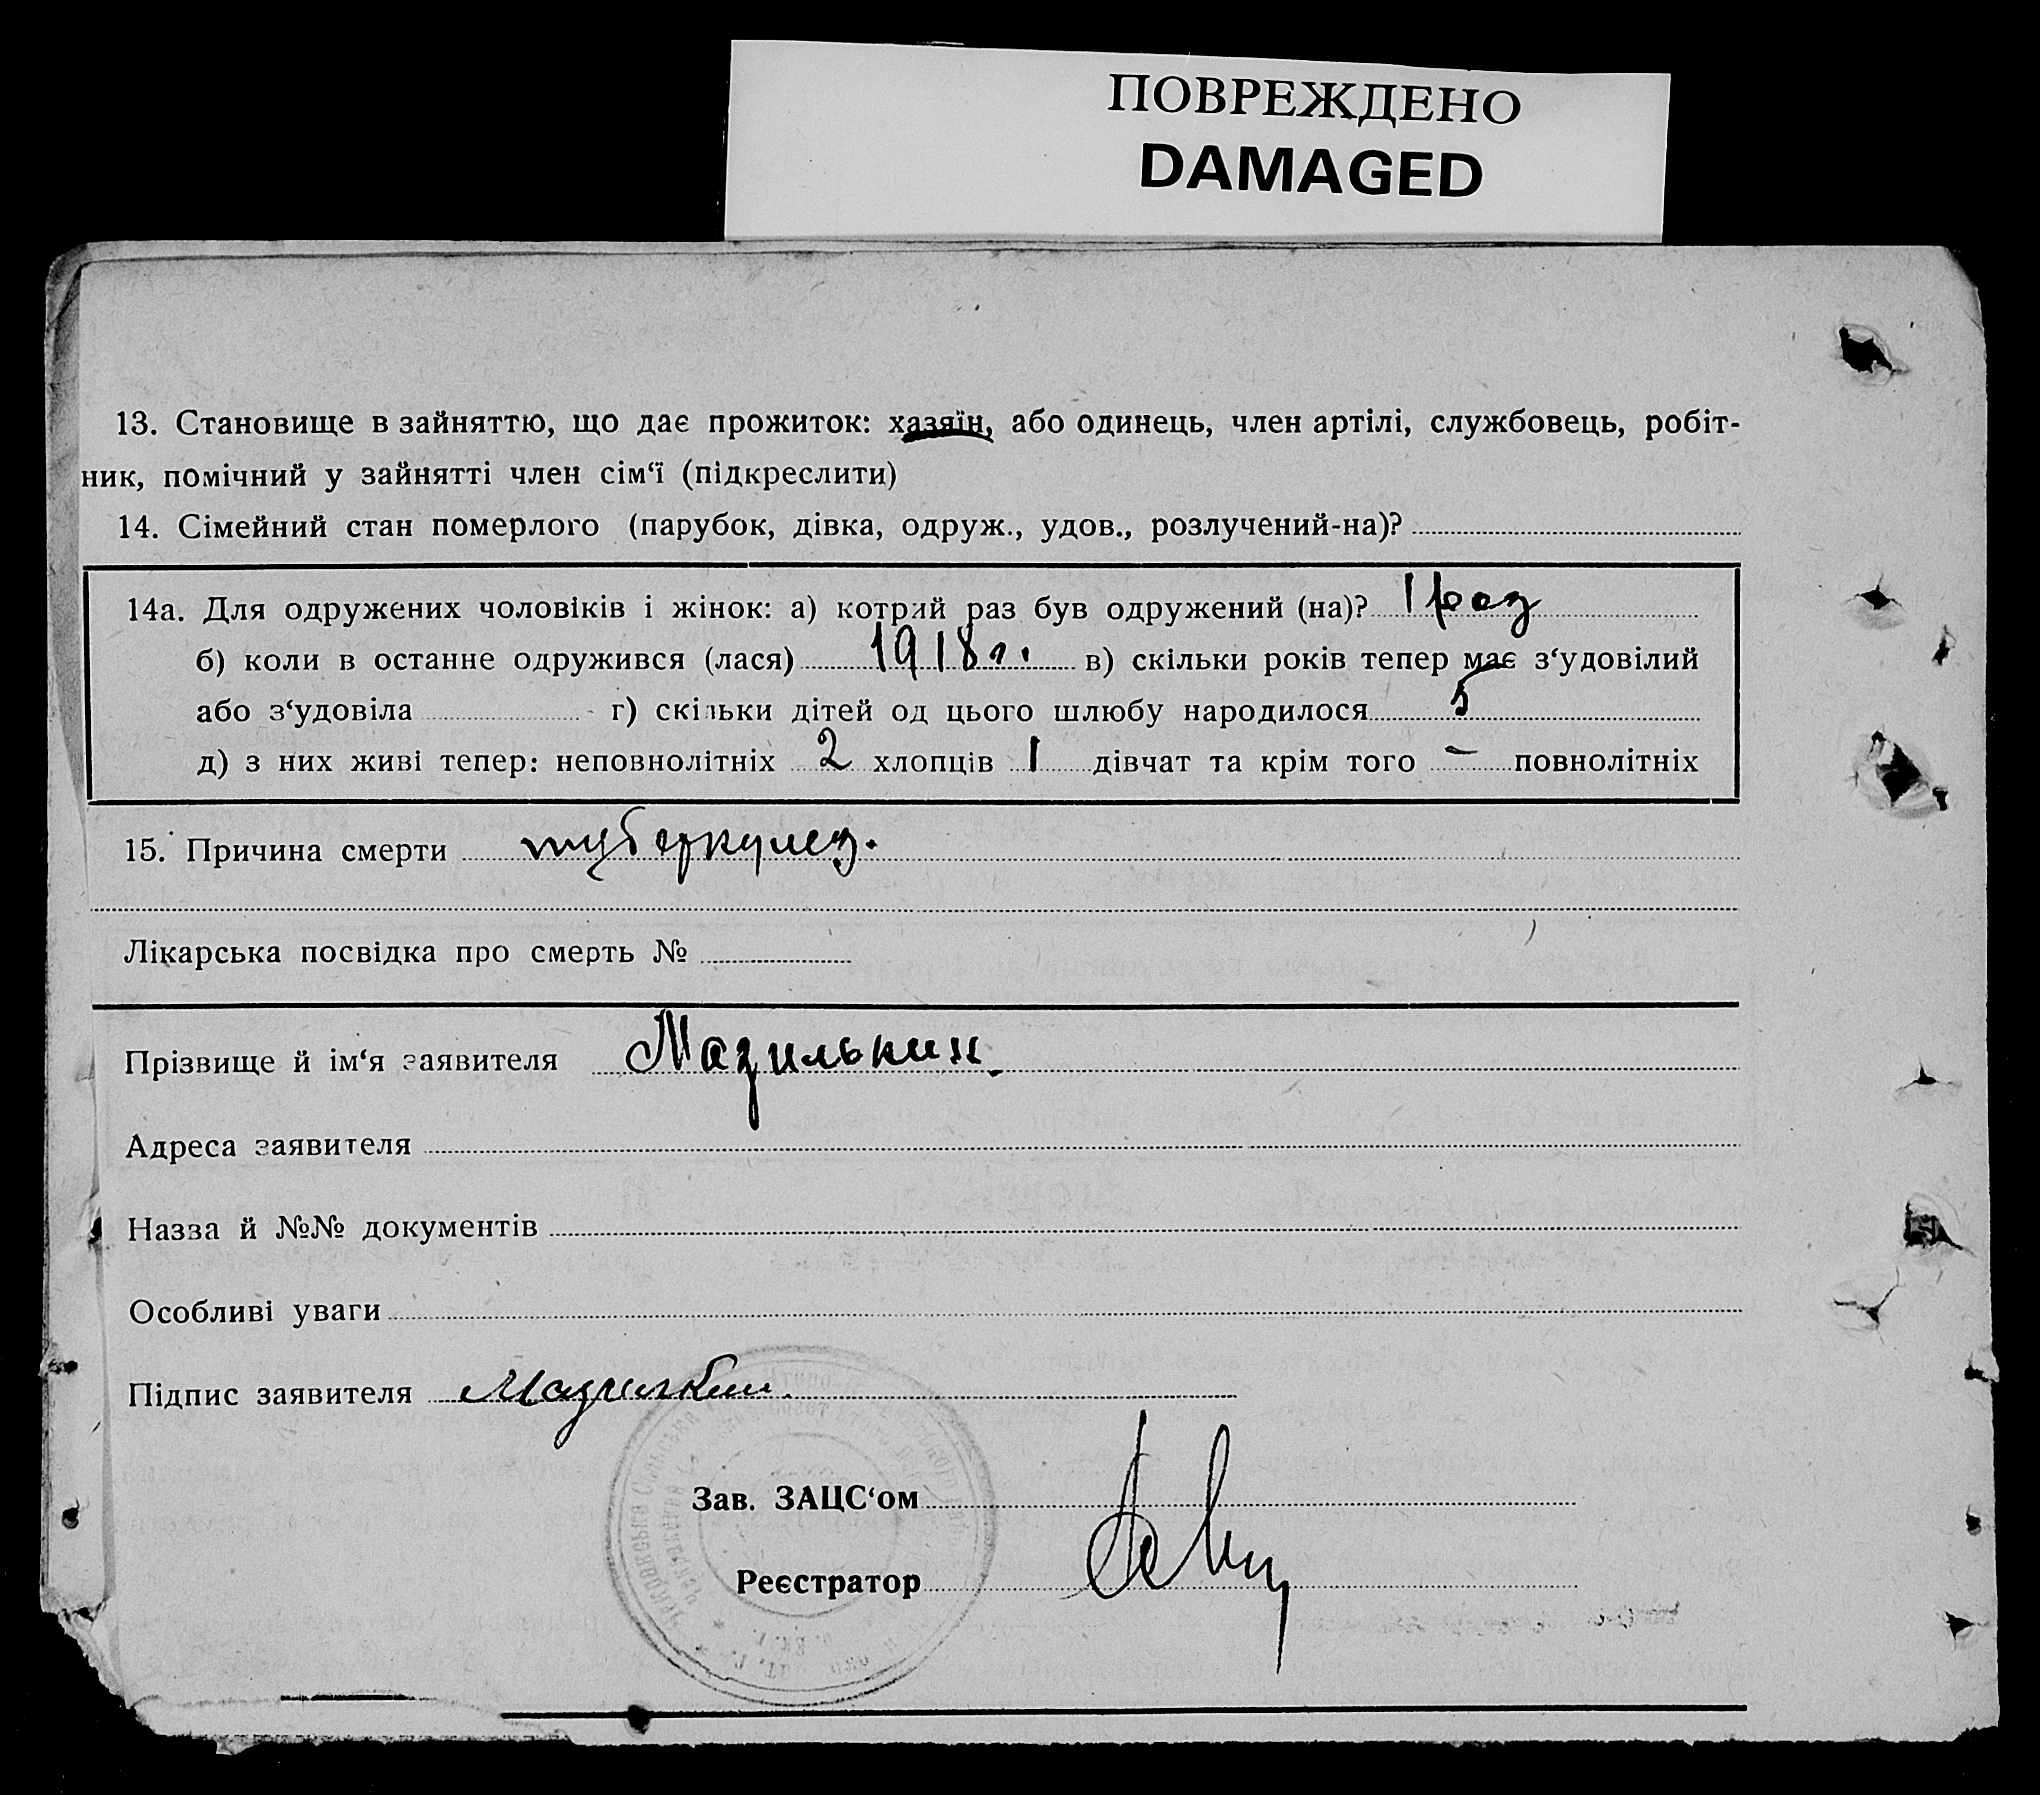 ПОВРЕЖДЕНО
DAMAGED
13. Становище в зайняттю, що дає прожиток: хазяїн, або одинець, член артілі, службовець, робіт-
ник, помічний у зайнятті член сім‘ї (підкреслити)
14. Сімейний стан померлого (парубок, дівка, одруж., удов., розлучений-на)?
14а. Для одружених чоловіків і жінок: а) котрий раз був одружений (на)? 1 раз
б) коли в останне одружився (лася) 1918 г. в) скільки років тепер має з‘удовілий
або з‘удовіла г) скільки дітей од цього шлюбу народилося 5
д) з них живі тепер: неповнолітніх 2 хлопців 1 дівчат та крім того – повнолітніх
15. Причина смерти туберкулез.
Лікарська посвідка про смерть №
Прізвище й ім‘я заявителя Мазилькин.
Адреса заявителя
Назва й №№ документів
Особливі уваги
Підпис заявителя Мазилькин.
Зав. ЗАЦС‘ом
Реєстратор